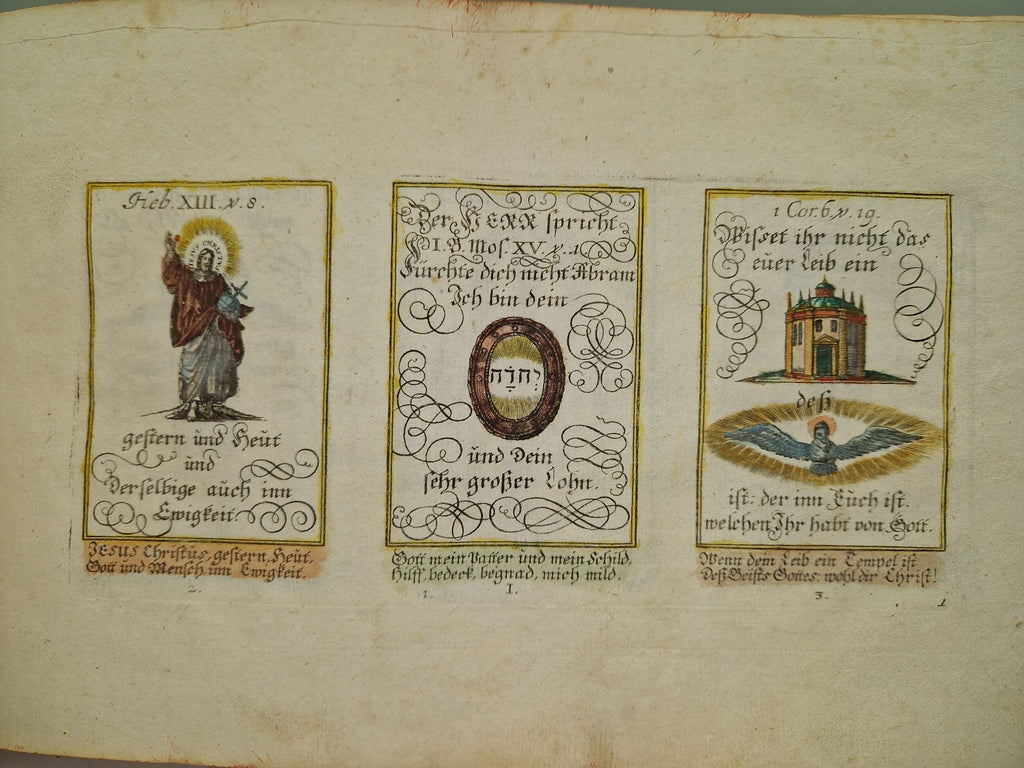 Heb. XIII. v. 8.
JESUS CHRISTUS
gestern und Heut
und
Derselbige auch inn
Ewigkeit.
JESUS Christus, gestern, Heut,
Gott und Mensch, inn Ewigkeit.
2.
Der HERR spricht
I. B. Mos. XV. v. 1
Fürchte dich nicht Abram
Ich bin dein
יְהוָה
und Dein
sehr großer Lohn.
Gott mein Vatter und mein Schild,
Hilff, bedeck, begnad, mich mild.
1.
I.
1 Cor. 6. v. 19.
Wisset ihr nicht das
euer Leib ein
deß
ist: der inn Euch ist.
welchen Ihr habt von Gott.
Wenn dem Leib ein Tempel ist
Deß Geists Gottes: wohl dir Christ!
3.
1